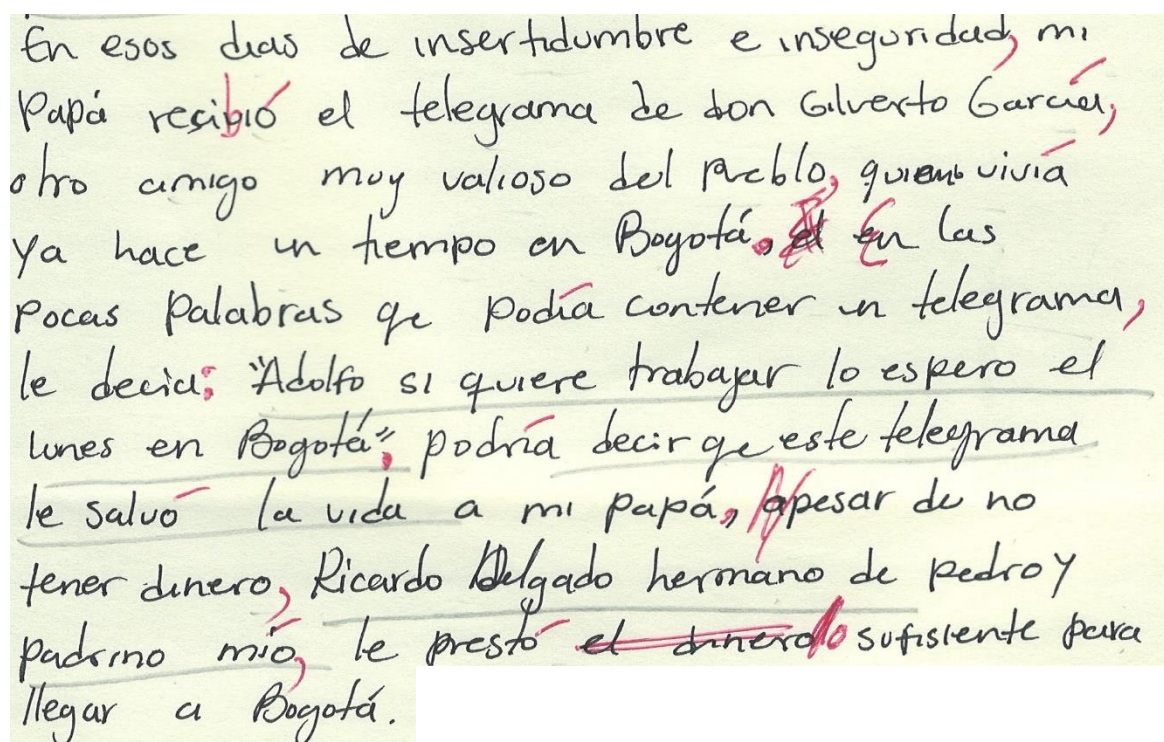 En esos dias de insertidumbre e inseguridad, mi
Papá resibió el telegrama de don Gilverto García,
otro amigo muy valioso del pueblo, quien vivía
ya hace un tiempo en Bogotá. En las
pocas palabras qe podía contener un telegrama,
le decia: "Adolfo si quiere trabajar lo espero el
lunes en Bogotá"; podría decir qe este telegrama
le salvó la vida a mi papá, apesar de no
tener dinero, Ricardo Delgado hermano de pedro y
padrino mío, le prestó el dinero lo sufisiente para
llegar a Bogotá.